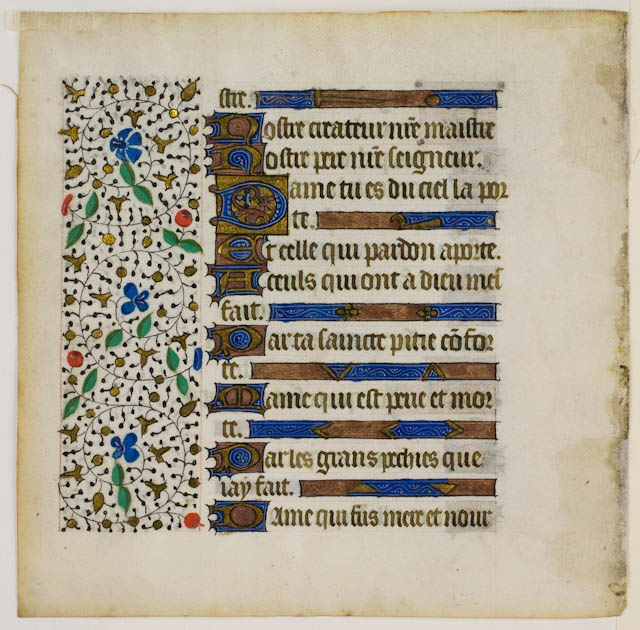 stre.
Nostre createur nr̃e maistre
Nostre pere nr̃e seigneur.
Dame tu es du ciel la por
te.
Et celle qui pardon aporte.
A ceuls qui ont a dieu mes
fait.
Par ta saincte pitie cõfor
te.
Mame qui est peue et mor
te.
Par les grans pechies que
iay fait.
Dame qui fus mere et nour